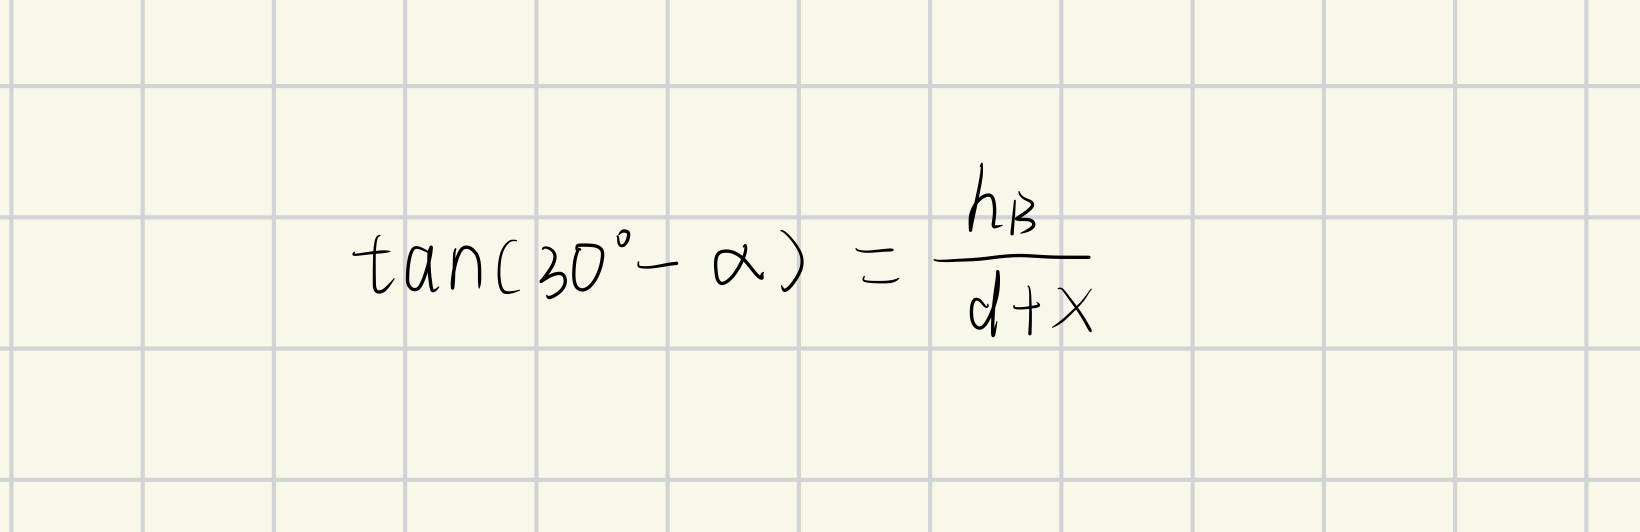 tan(30° - α) = \frac{h_B}{d+x}